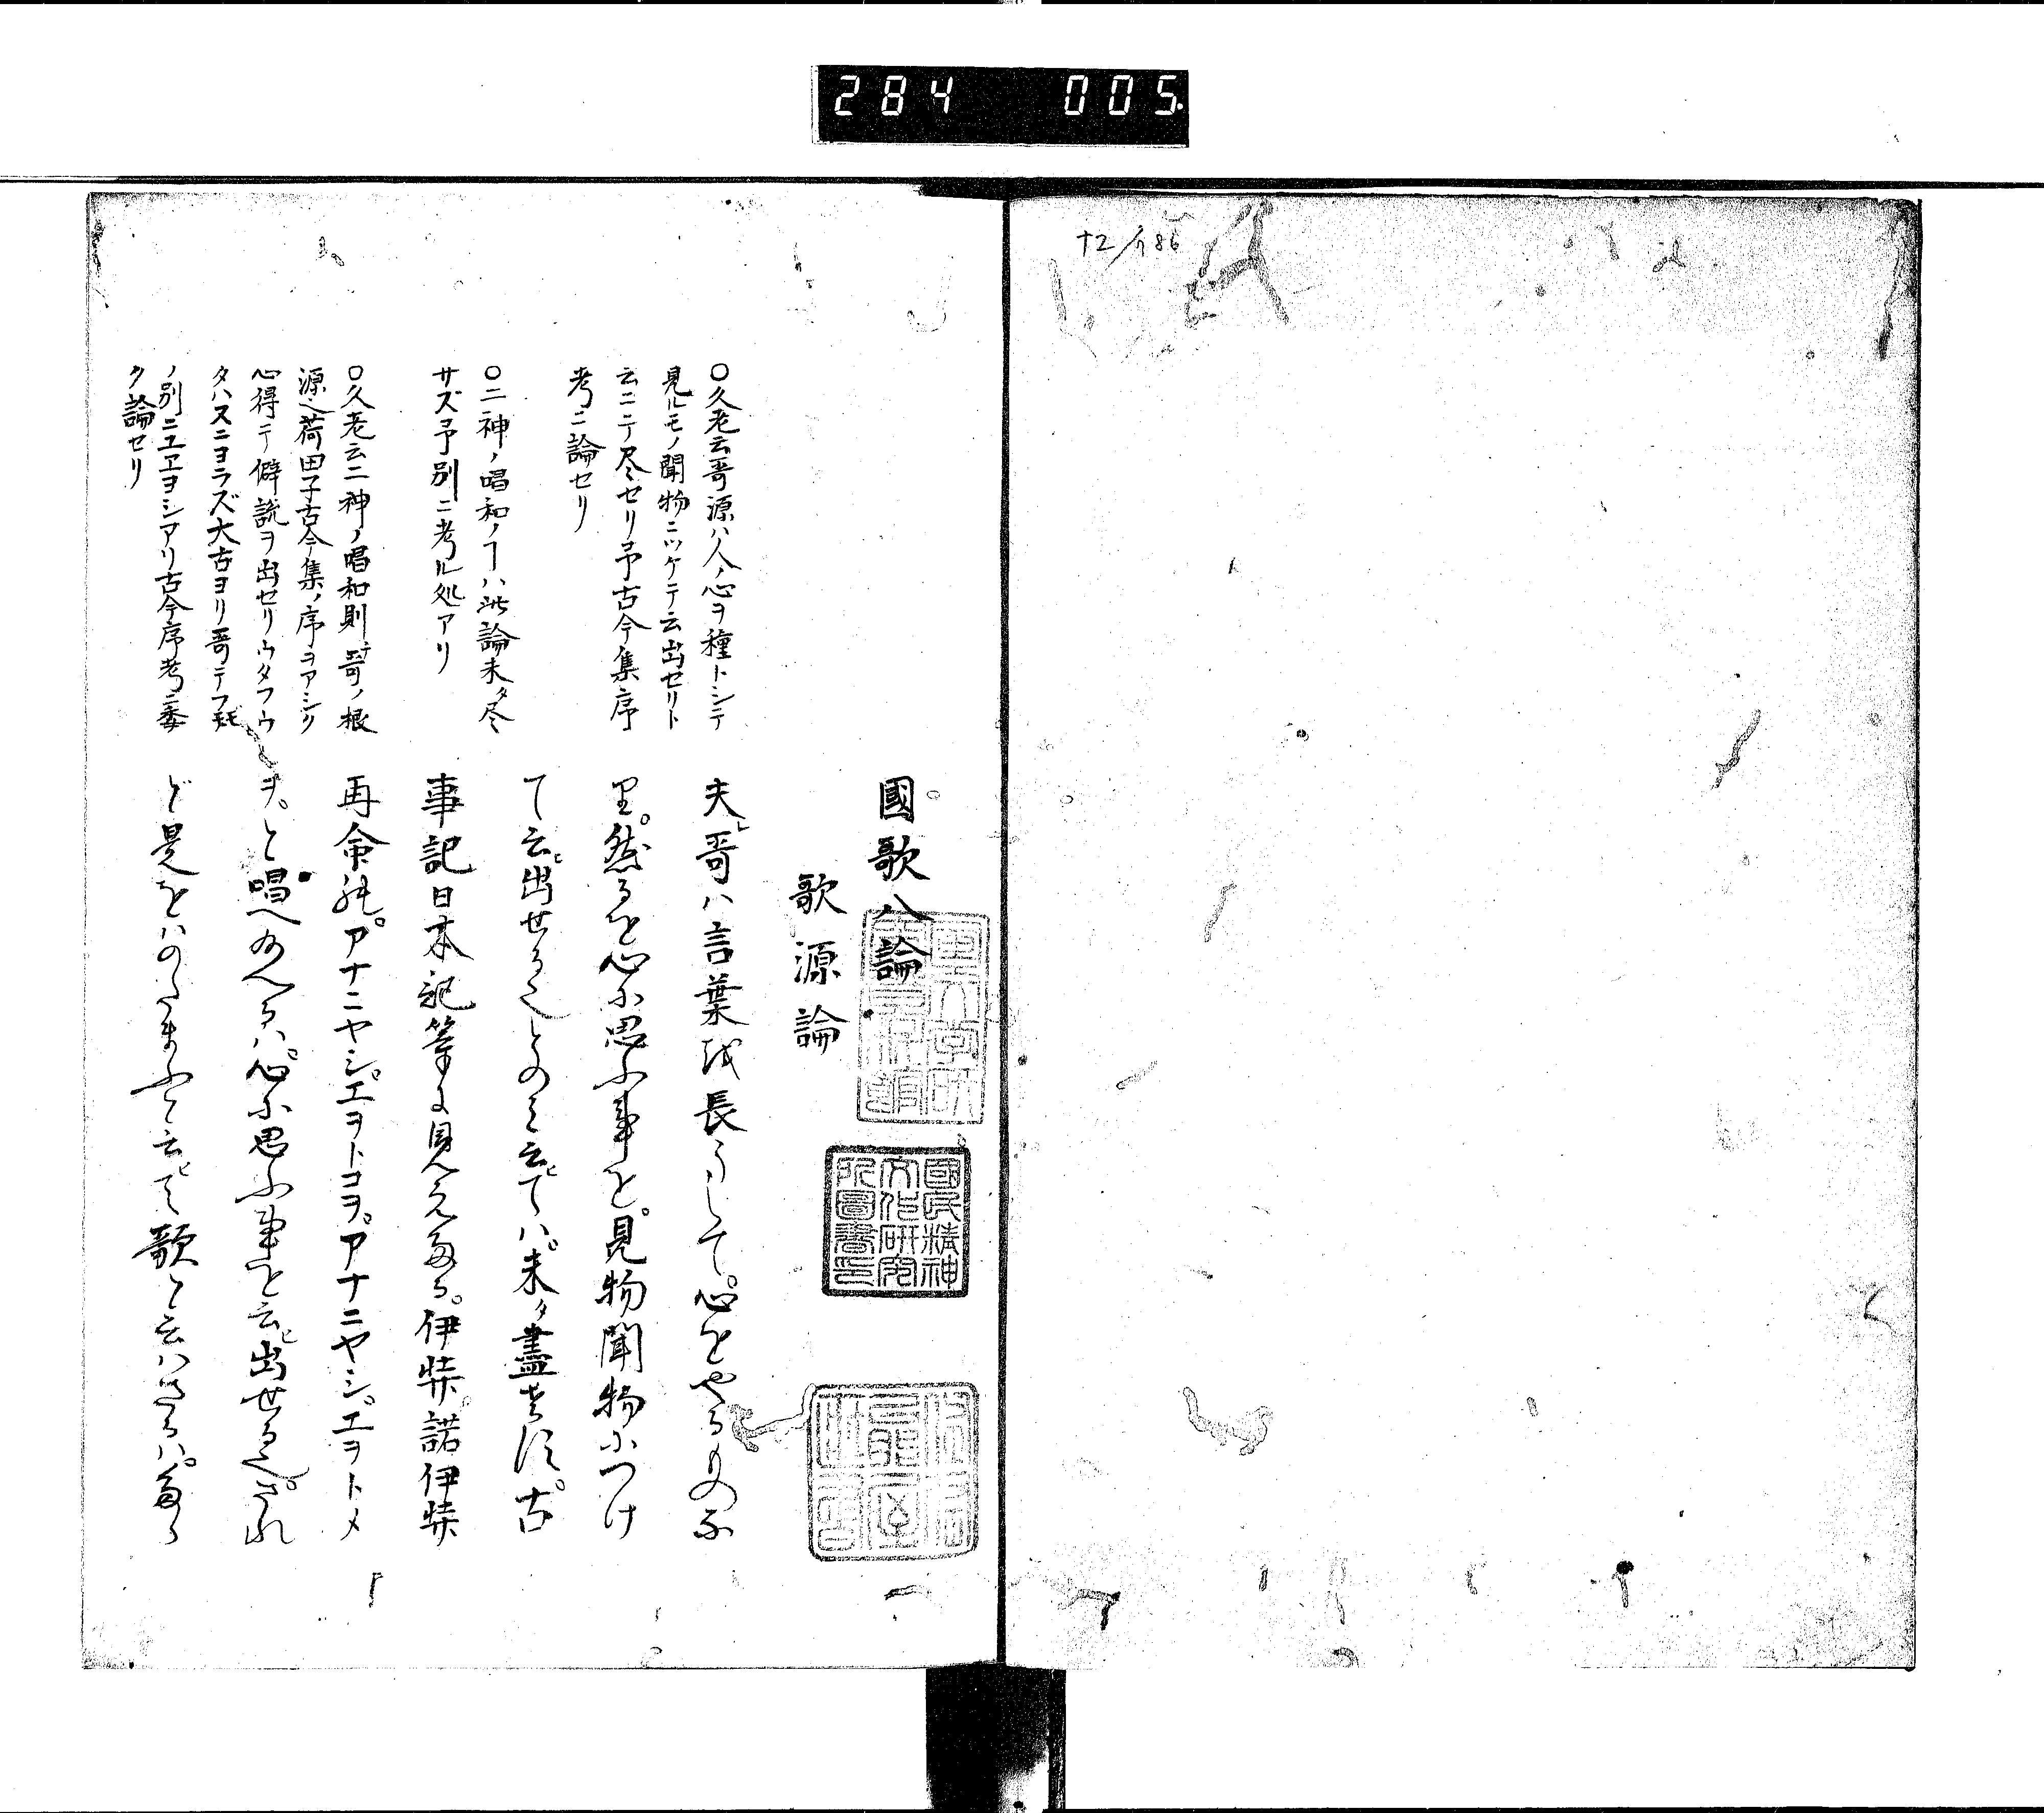 284 005.
國歌八論
歌源論
夫レ哥ハ言葉を長うして。心をやるものな
り。然るを心に思ふ事を。見物聞物につけ
て云ヒ出せる也とのミ云ヒてハ。未タ盡さず。古
事記日本記等に見えたる。伊弉諾伊弉
再命の。アナニヤシ。エヲトコヲ。アナニヤシ。エヲトメ
ヲ。と唱へ給へるハ。心に思ふ事を云ヒ出せる也。され
ど是をハのたまふと云ヒて歌と云ハざるハ。
〇久老云哥源ハ人ノ心ヲ種トシテ
見ルモノ聞物ニツケテ云出セリト
云ニテ尽セリ予古今集序
考ニ論セリ
〇二神ノ唱和ノヿハ此論未タ尽
サズ予別ニ考ル処アリ
〇久老云二神ノ唱和則チ哥ノ根
源也荷田子古今集ノ序ヲアシク
心得テ僻説ヲ出セリウタフウ
タハスニヨラズ大古ヨリ哥テフ
ノ別ニユヱヨシアリ古今序考ニ委
ク論セリ
國民精神
文化研究
所圖書印